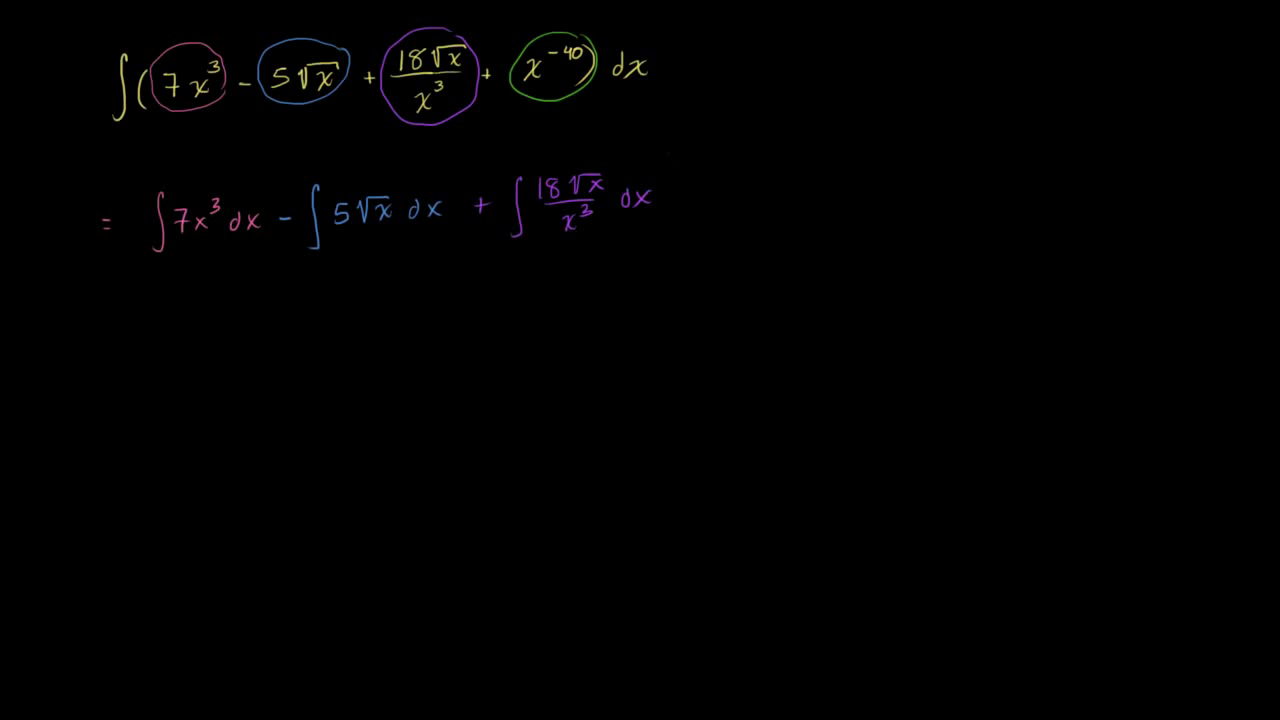 ∫(7x³ - 5√x + 18√x/x³ + x⁻⁴⁰) dx
= ∫7x³ dx - ∫5√x dx + ∫18√x/x³ dx